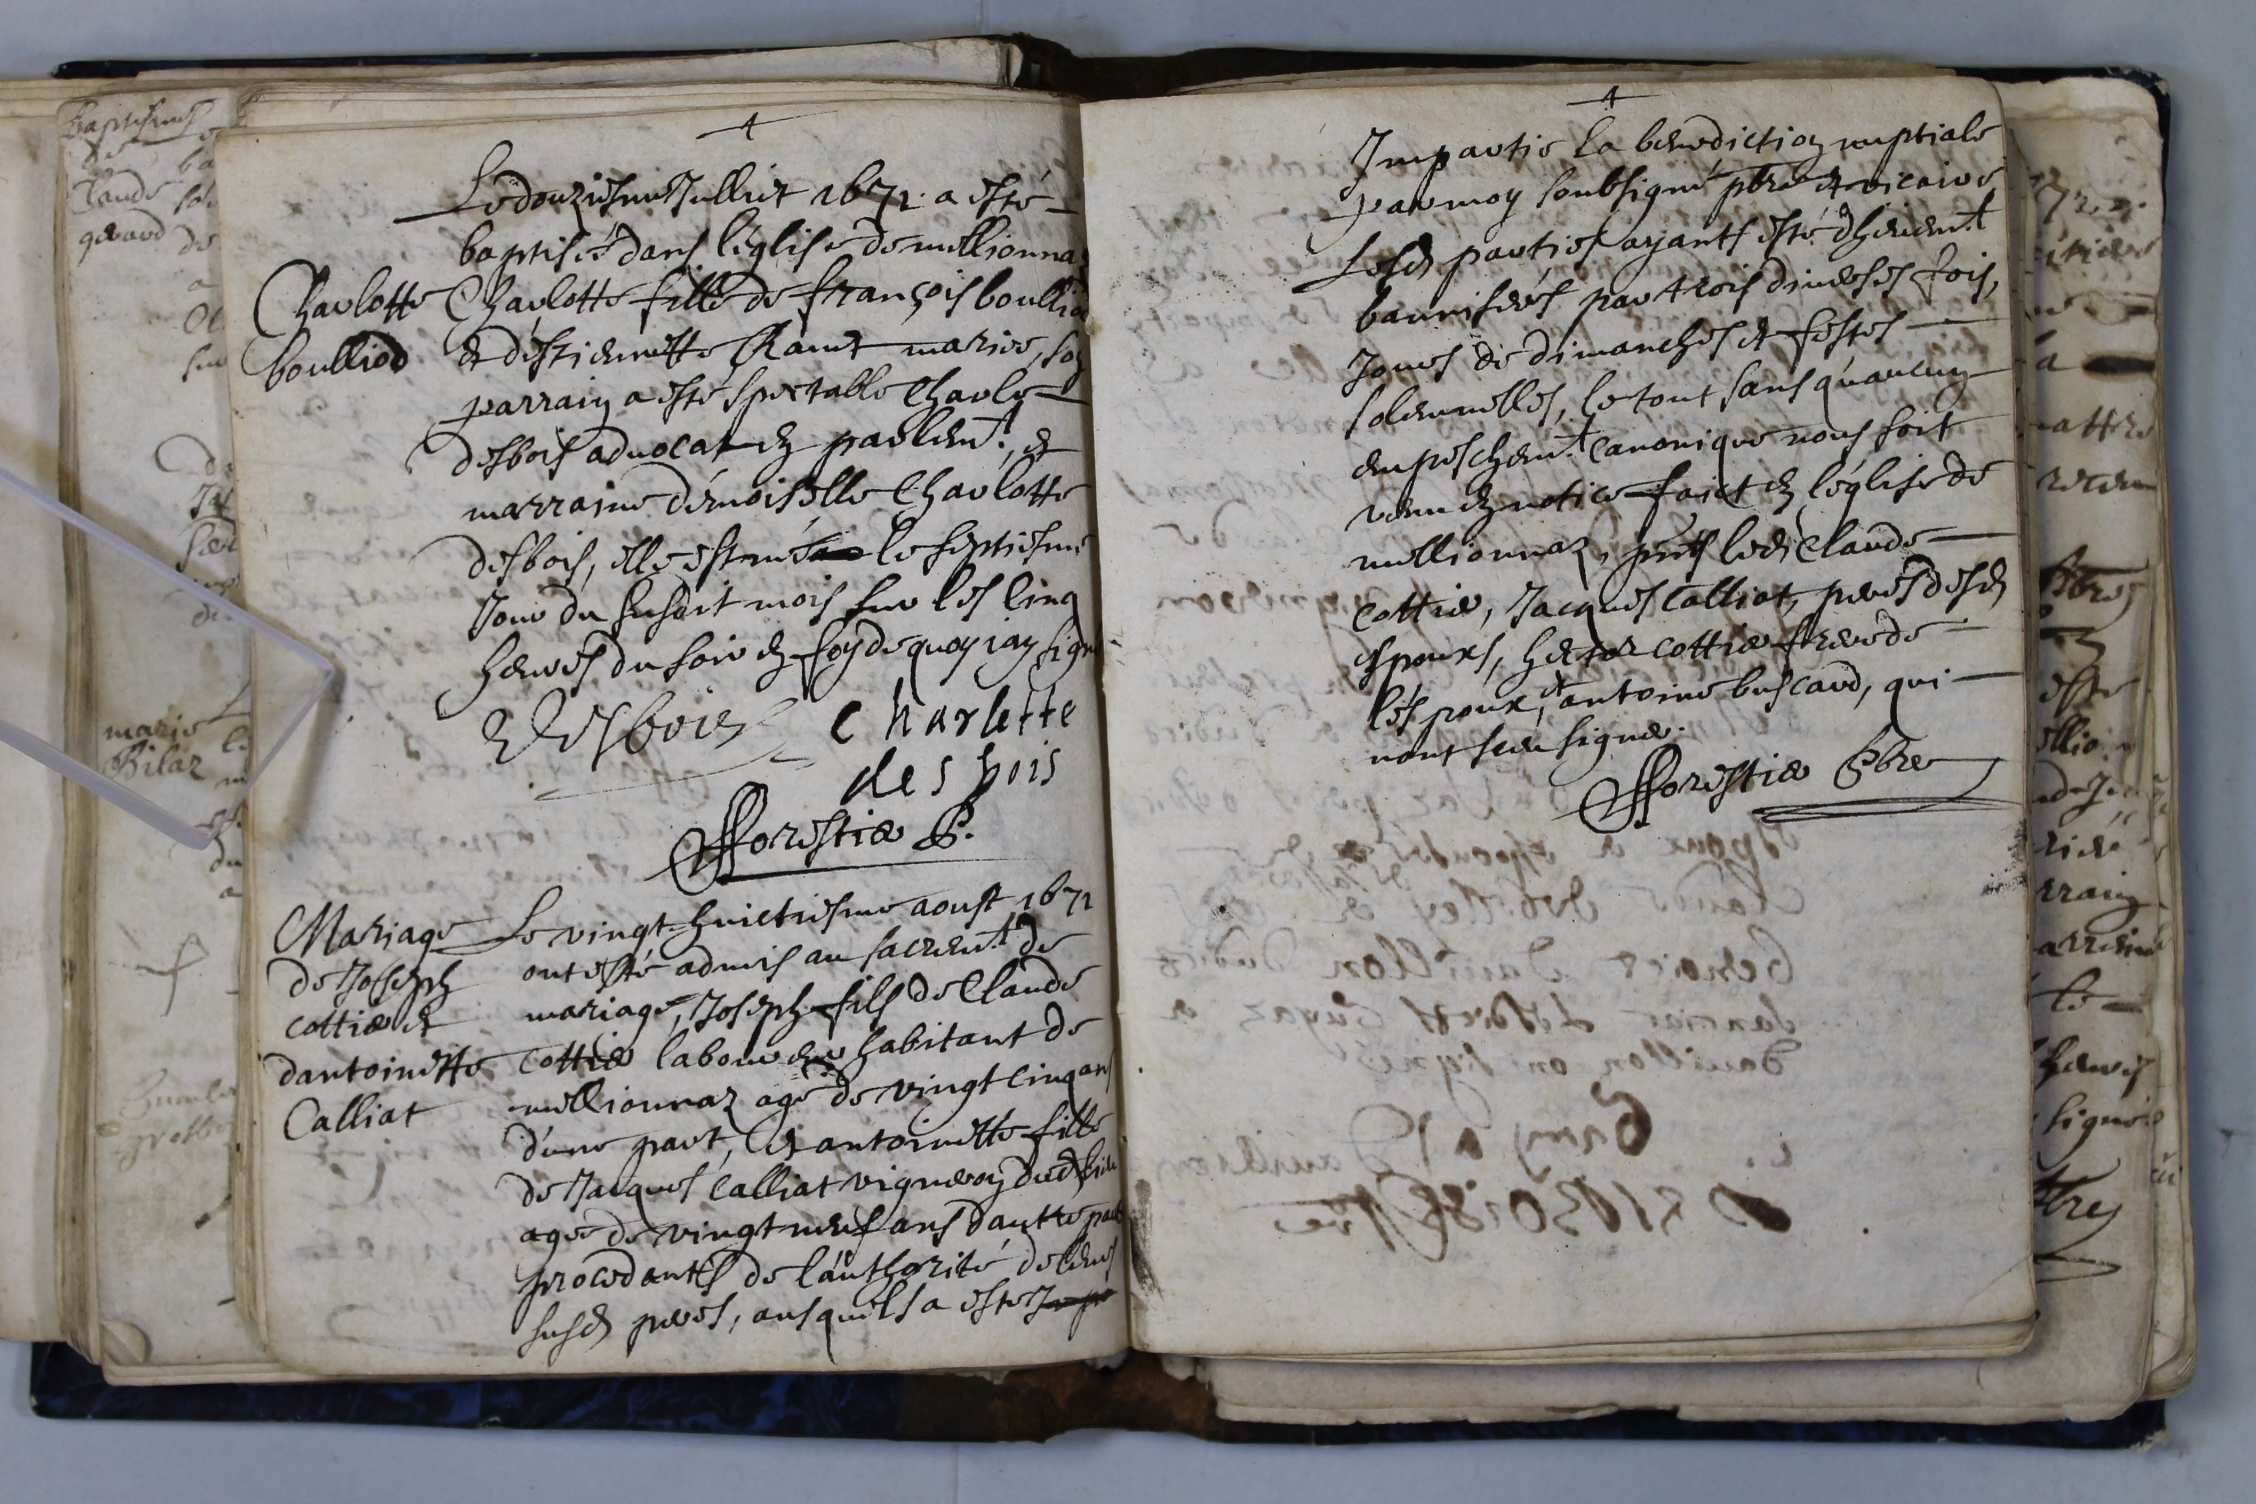 Charlotte
boulliod
Le douziesme Julliet 1671 a esté
baptisée dans l'église de millionna
Charlotte fille de françois boullio
et d'estiennette mariee, son
parrain a esté spectable Charle
desbois advocat en parlemt., et
marraine démoiselle Charlotte
desbois, elle est née le septiesme
Jour du susdit mois sur les cinq
heures du soir en foy de quoy iay sign
Desbois Charlotte
des bois
fforestier P.
Mariage
de Joseph
cottier et
dantoinette
Calliat
Le vingt huictiesme aoust 1671
ont esté admis au sacremt. de
mariage, Joseph fils de Claude
Cottier laboureur habitant de
millionnaz agé de vingt cinq ans
d'une part, et antoinette fille
de Jacques Calliat vigneron dud. lieu
agee de vingt neuf ans d'auttre part
procedants de l'authorité de leurs
susd. peres, ausquels a esté
Impartie la benediction nuptiale
par moy soubsigné pbre et vicaire
Lesd. parties ayants esté dheuemt.
bannisées par trois diverses fois,
Jours de dimanches et festes
solemnelles, le tout sans qu'aucun
empeschemt. canonique nous soit
venu en notice faict en l'église de
millionnaz, pnts led. Claude
Cottier, Jacques Calliat, peres desd.
espoux, hector cottier frere de
l'éspoux, et antoine buscard, qui
n'ont sceu signer.
fforestier Pbre
marie
Bilaz